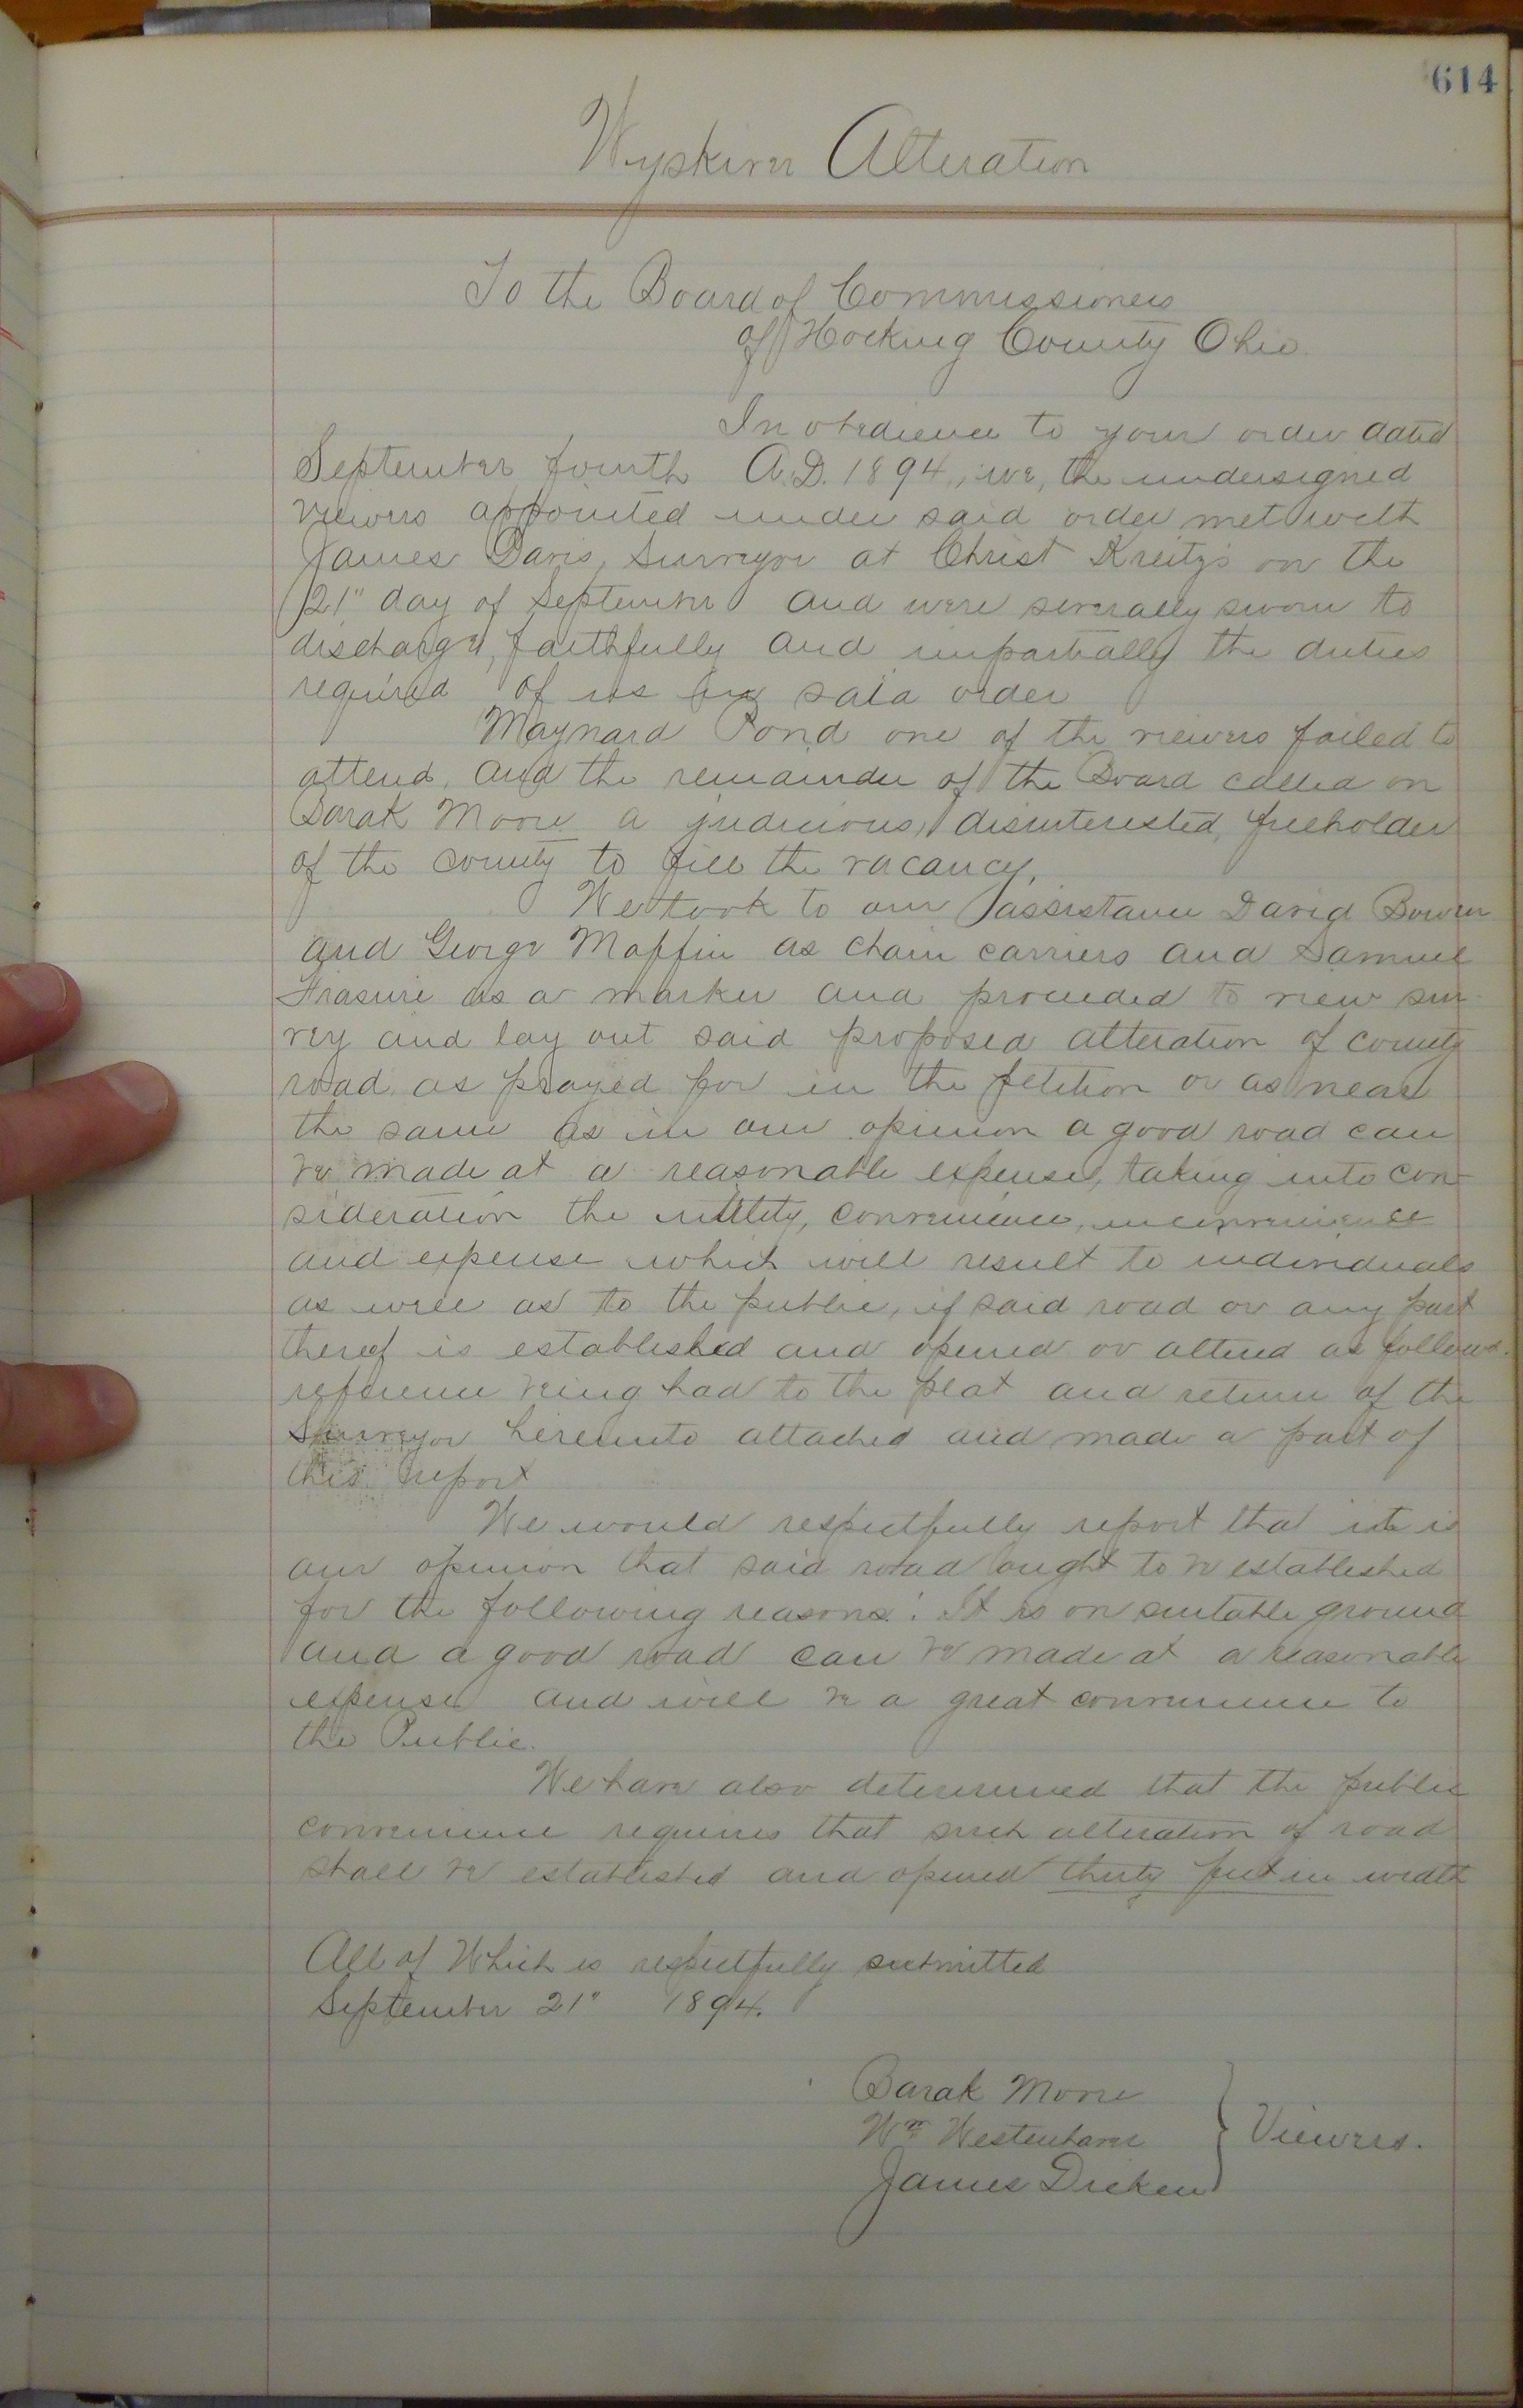 614
Wyskiver Alteration
To the Board of Commissioners
of Hocking County Ohio.
In obedience to your order dated
September fourth A.D. 1894, we, the undersigned
viewers appointed under said order met with
James Davis, Surveyor at Christ Kreitz's on the
21" day of September and were severally sworn to
discharge, faithfully and impartially the duties
required of us by said order
Maynard Pond one of the viewers failed to
attend, and the remainder of the Board called on
Barak Moore a judicious, disinterested, freeholder
of the county to fill the vacancy,
We took to our assistance David Bowen
and George Maffin as chain carriers and Samuel
Frasure as a marker and proceeded to view sur-
vey and lay out said proposed alteration of county
road, as prayed for in the petition or as near
the same as in our opinion a good road can
be made at a reasonable expense, taking into con-
sideration the utility, convenience, inconvenience
and expense which will result to individuals
as well as to the public, if said road or any part
thereof is established and opened or altered as follows.
reference being had to the plat and return of the
Surveyor hereunto attached and made a part of
this report
We would respectfully report tha it is
our opinion that said road ought to be established
for the following reasons: It is on suitable ground
and a good road can be made at a reasonable
expense and will be a great convenience to
the Public.
We have also determined that the public
convenience requires that such alteration of road
shall be established and opened thirty feet in width
All of Which is respectfully submitted
September 21" 1894.
Barak Moore
Wm Westenhaver
James Dicken
Viewers.